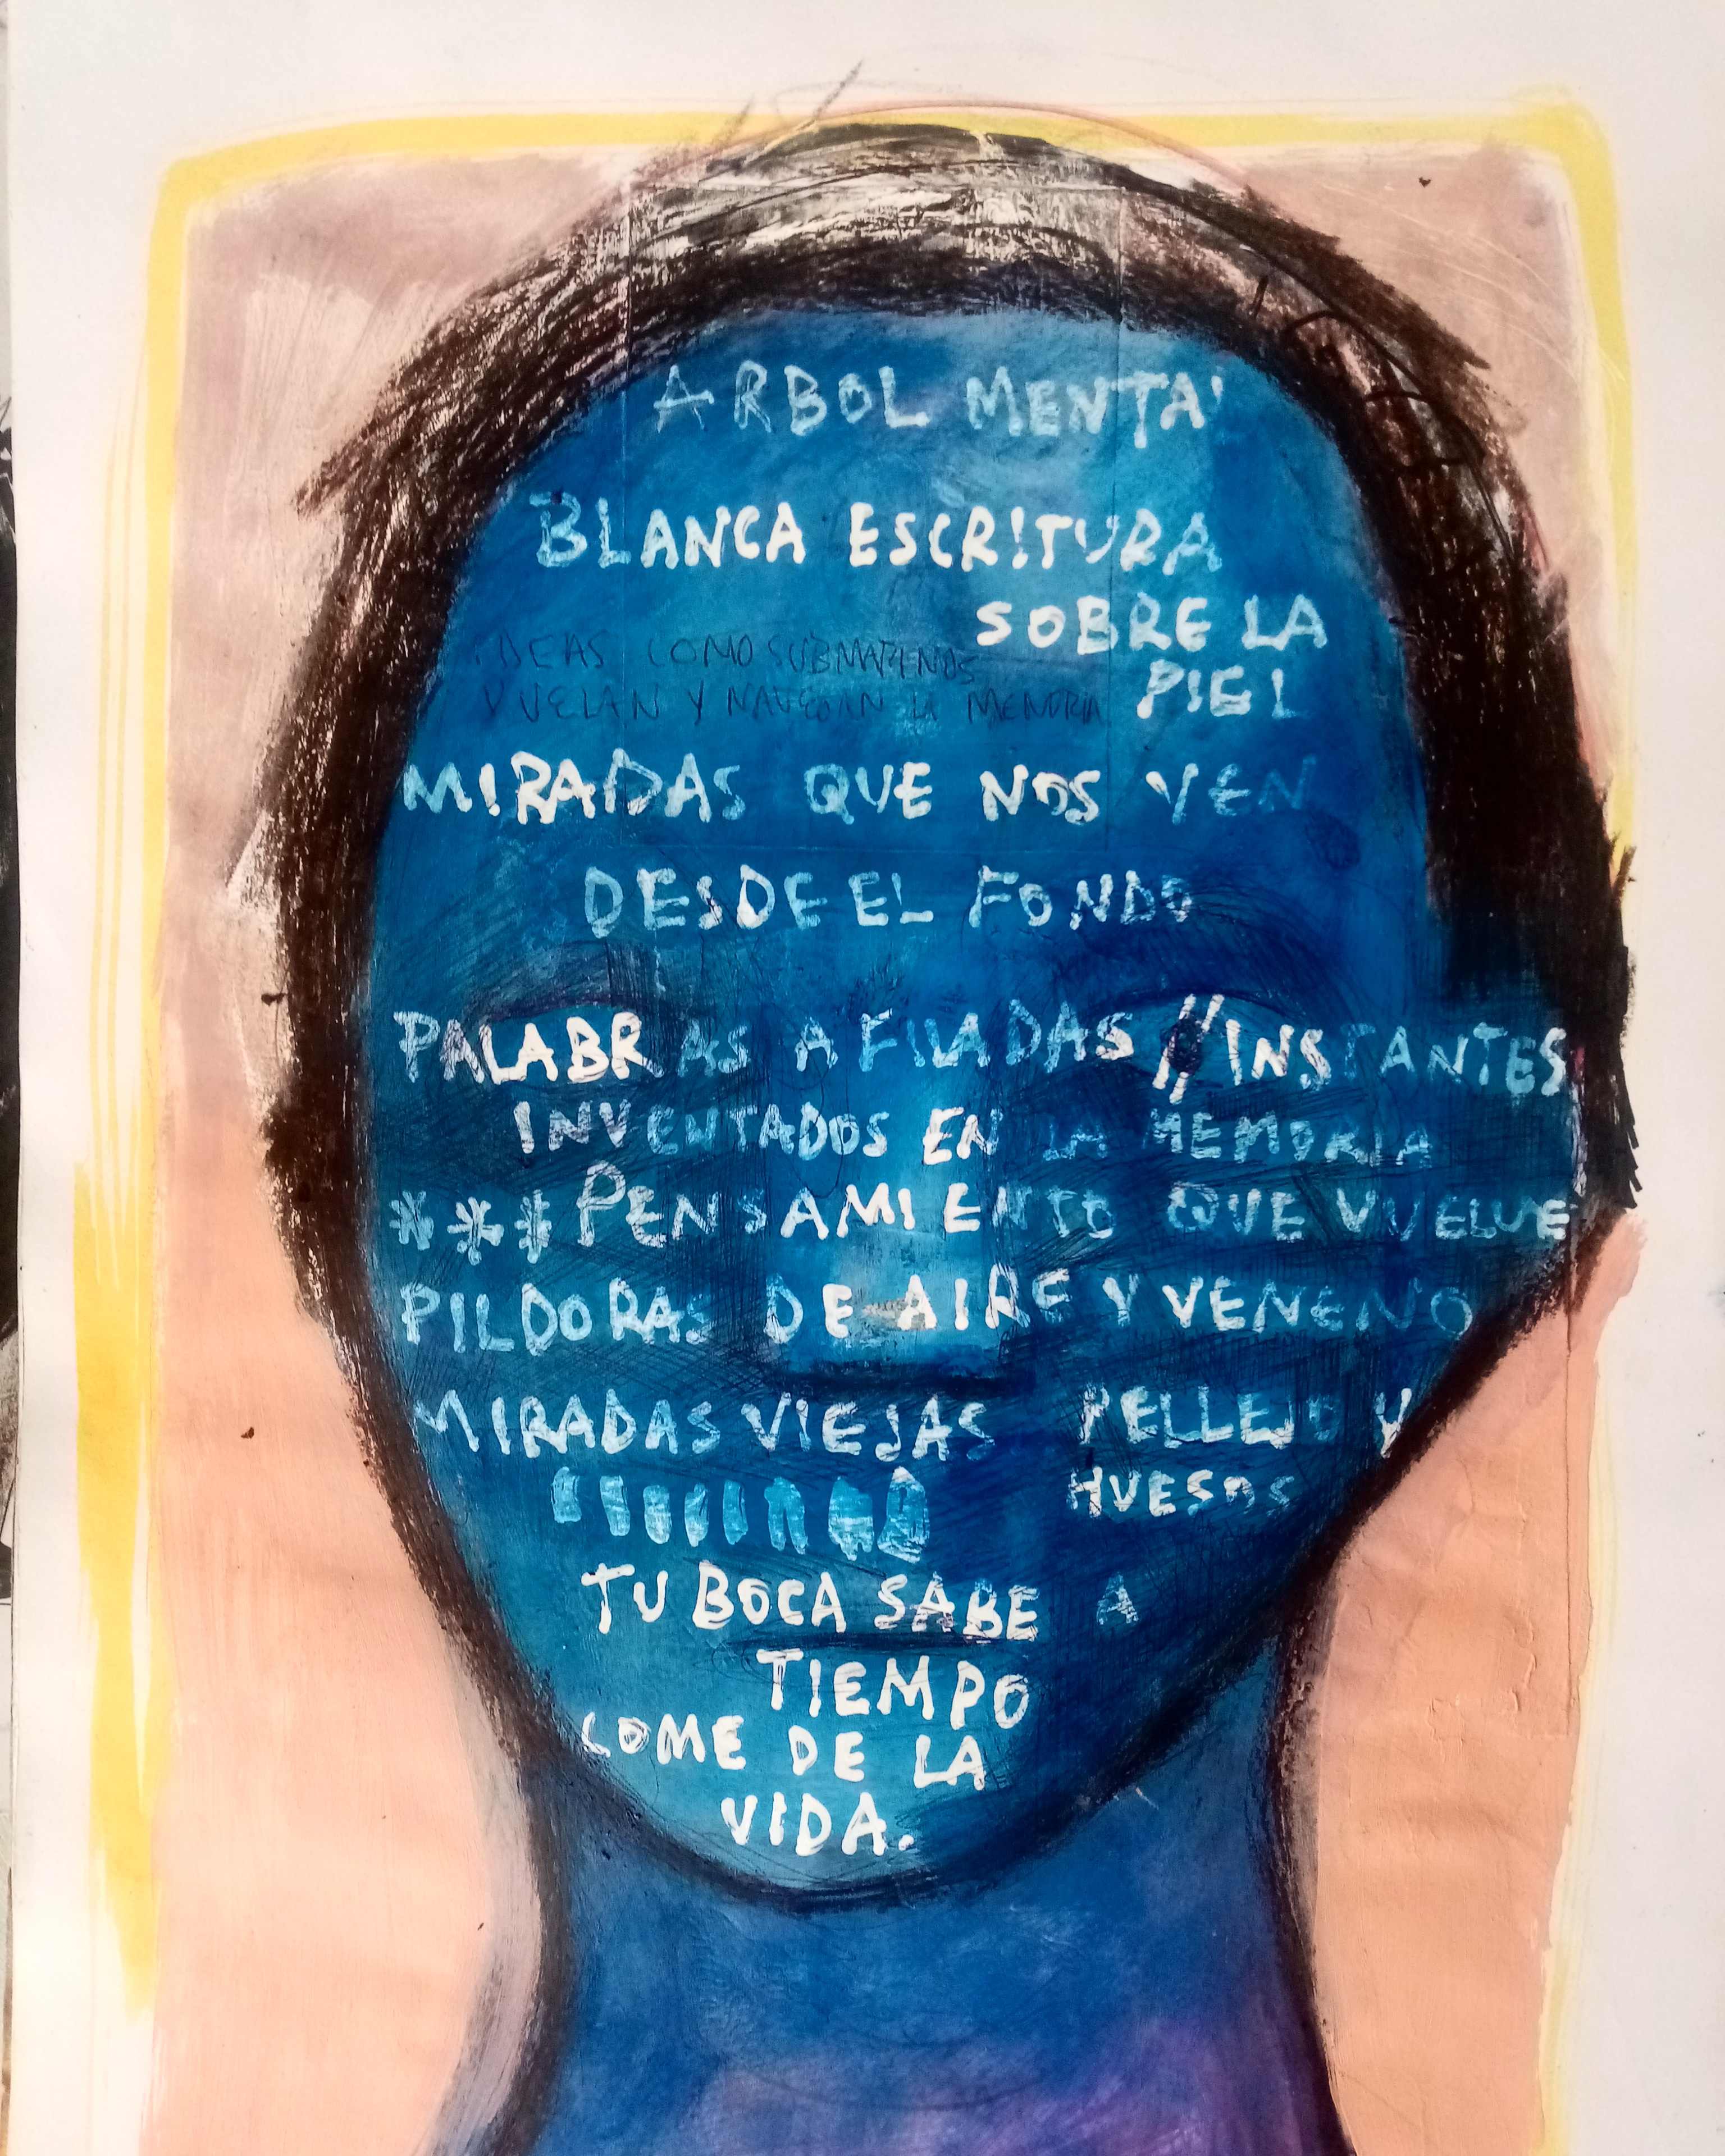 ARBOL MENTA'
BLANCA ESCRITURA
SOBRE LA
IDEAS COMO SUBMARINOS
PIEL
VUELAN Y NAVEGAN LA MEMORIA
MIRADAS QUE NOS VEN
DESDE EL FONDO
PALABRAS AFILADAS // INSTANTES
INVENTADOS EN LA MEMORIA
*** PENSAMIENTO QUE VUELVE
PILDORAS DE AIRE Y VENENO
MIRADAS VIEJAS PELLEJO Y
HUESOS
TU BOCA SABE A
TIEMPO
COME DE LA
VIDA.